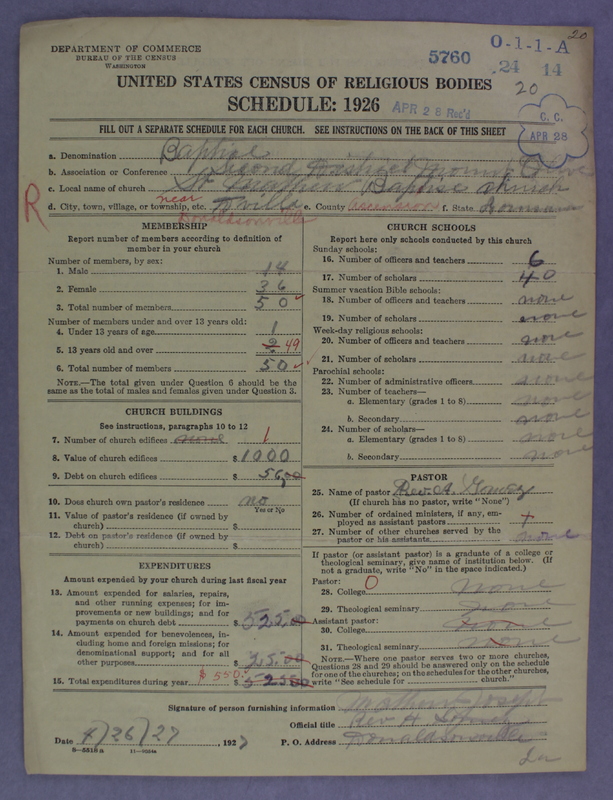 20
DEPARTMENT OF COMMERCE
BUREAU OF THE CENSUS
WASHINGTON
5760
O-1-1-A
24 14
20
UNITED STATES CENSUS OF RELIGIOUS BODIES
SCHEDULE: 1926
APR 28 Rec'd
C. C.
APR 28
FILL OUT A SEPARATE SCHEDULE FOR EACH CHURCH. SEE INSTRUCTIONS ON THE BACK OF THIS SHEET
a. Denomination Baptise
b. Association or Conference Second District
c. Local name of church St Baptise church
R
d. City, town, village, or township, etc. near Dville e. County f. State
Donaldsonville
MEMBERSHIP
Report number of members according to definition of member in your church
Number of members, by sex:
1. Male 14
2. Female 36
3. Total number of members 50
Number of members under and over 13 years old:
4. Under 13 years of age 1
5. 13 years old and over 49
6. Total number of members 50
NOTE.—The total given under Question 6 should be the same as the total of males and females given under Question 3.
CHURCH BUILDINGS
See instructions, paragraphs 10 to 12
7. Number of church edifices none 1
8. Value of church edifices $ 1000
9. Debt on church edifices $
10. Does church own pastor's residence no
Yes or No
11. Value of pastor's residence (if owned by church) $
12. Debt on pastor's residence (if owned by church) $
EXPENDITURES
Amount expended by your church during last fiscal year
13. Amount expended for salaries, repairs, and other running expenses; for improvements or new buildings; and for payments on church debt $ 525.00
14. Amount expended for benevolences, including home and foreign missions; for denominational support; and for all other purposes $ 25.00
15. Total expenditures during year $ 550. $ 525.00
CHURCH SCHOOLS
Report here only schools conducted by this church
Sunday schools:
16. Number of officers and teachers 6
17. Number of scholars 40
Summer vacation Bible schools:
18. Number of officers and teachers none
19. Number of scholars none
Week-day religious schools:
20. Number of officers and teachers none
21. Number of scholars none
Parochial schools:
22. Number of administrative officers none
23. Number of teachers—
a. Elementary (grades 1 to 8) none
b. Secondary none
24. Number of scholars—
a. Elementary (grades 1 to 8) none
b. Secondary none
PASTOR
25. Name of pastor Rev. A.
(If church has no pastor, write "None")
26. Number of ordained ministers, if any, employed as assistant pastors
27. Number of other churches served by the pastor or his assistants none
If pastor (or assistant pastor) is a graduate of a college or theological seminary, give name of institution below. (If not a graduate, write "No" in the space indicated.)
Pastor: O
28. College none
29. Theological seminary none
Assistant pastor:
30. College none
31. Theological seminary none
NOTE.—Where one pastor serves two or more churches, Questions 28 and 29 should be answered only on the schedule for one of the churches; on the schedules for the other churches, write "See schedule for church."
Signature of person furnishing information Joseph
Official title Rev A
Date 4/26/27, 1927 P. O. Address Donaldsonville
8—5516 a 11—9084a
La